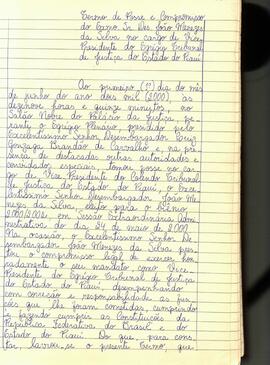 Termo de Posse e Compromisso
do Exmo. Sr. Des. João Menezes
da Silva no cargo de Vice-
Presidente do Egrégio Tribunal
de Justiça do Estado do Piauí
Ao primeiro (1º) dia do mês
de junho do ano dois mil (2000), às
dezenove horas e quinze minutos, no
Salão Nobre do Palácio da Justiça, pe-
rante o Egrégio Plenário, presidido pelo
Excelentíssimo Senhor Desembargador Luiz
Gonzaga Brandão de Carvalho e, na pre-
sença de destacadas outras autoridades e
convidados especiais, tomou posse no car-
go de Vice-Presidente do Colendo Tribunal
de Justiça do Estado do Piauí, o Exce-
lentíssimo Senhor Desembargador João Me-
nezes da Silva, eleito para o biênio
2000/2002, em Sessão Extraordinária Admi-
nistrativa do dia 24 de maio de 2000.
Na ocasião, o Excelentíssimo Senhor De-
sembargador João Menezes da Silva pres-
tou o compromisso legal de exercer hon-
radamente o seu mandato como Vice-
Presidente do Egrégio Tribunal de Justiça
do Estado do Piauí, desempenhando
com correção e responsabilidade as fun-
ções que lhe foram cometidas, cumprindo
e fazendo cumprir as Constituições da
República Federativa do Brasil e do
Estado do Piauí. Do que, para cons-
tar, lavrou-se o presente termo, que